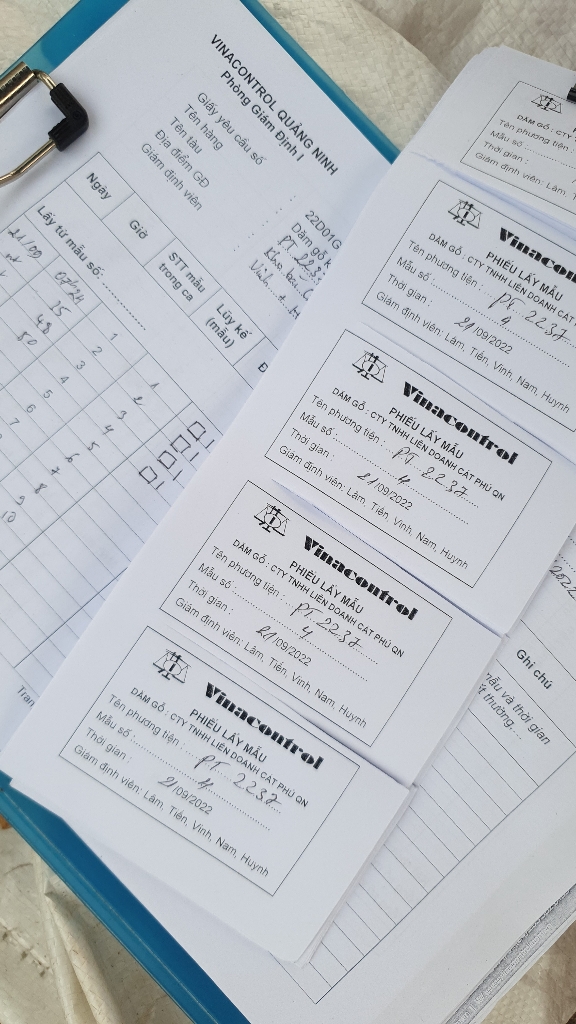 VINACONTROL QUẢNG NINH
Phòng Giám Định I
Giấy yêu cầu số : 22D01G
Tên hàng : Dăm gỗ k
Tên tàu : PT 2237
Địa điểm GĐ :
Giám định viên :
Ngày
Giờ
STT mẫu trong ca
Lũy kế (mẫu)
Lấy từ mẫu số:
21/09
35 1 1
48 2 2
50 3 3
4 4
5 5
6 6
7 7
8
9
10
Ghi chú
mẫu và thời gian
ất thường...
2022
DĂM GỖ : CTY
Tên phương tiện :
Mẫu số :
Thời gian :
Giám định viên: Lâm, T
Vinacontrol
PHIẾU LẤY MẪU
DĂM GỖ : CTY TNHH LIÊN DOANH CÁT PHÚ QN
Tên phương tiện : PT. 2237
Mẫu số : 4
Thời gian : 21/09/2022
Giám định viên: Lâm, Tiến, Vinh, Nam, Huynh
Vinacontrol
PHIẾU LẤY MẪU
DĂM GỖ : CTY TNHH LIÊN DOANH CÁT PHÚ QN
Tên phương tiện : PT. 2237
Mẫu số : 4
Thời gian : 21/09/2022
Giám định viên: Lâm, Tiến, Vinh, Nam, Huynh
Vinacontrol
PHIẾU LẤY MẪU
DĂM GỖ : CTY TNHH LIÊN DOANH CÁT PHÚ QN
Tên phương tiện : PT. 2237
Mẫu số : 4
Thời gian : 21/09/2022
Giám định viên: Lâm, Tiến, Vinh, Nam, Huynh
Vinacontrol
PHIẾU LẤY MẪU
DĂM GỖ : CTY TNHH LIÊN DOANH CÁT PHÚ QN
Tên phương tiện : PT. 2237
Mẫu số : 4
Thời gian : 21/09/2022
Giám định viên: Lâm, Tiến, Vinh, Nam, Huynh